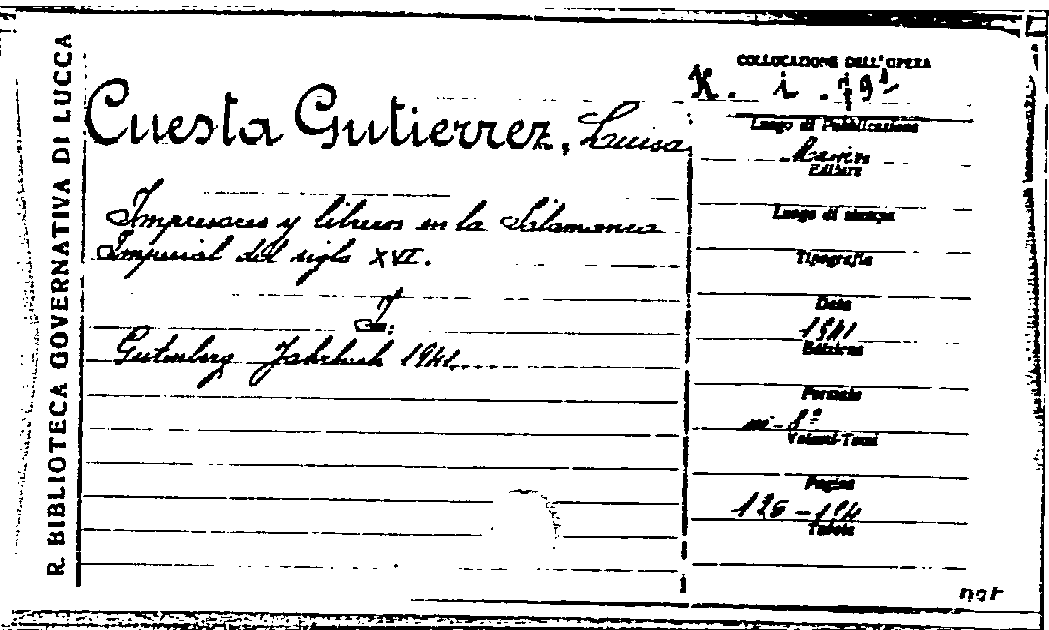 R. BIBLIOTECA GOVERNATIVA DI LUCCA
Cuesta Gutierrez, Luisa
Impresores y libreros en la Salamanca
Imperial del siglo XVI.
Gutenberg Jahrbuch 1941
COLLOCAZIONE DELL'OPERA
K. i.
Luogo di Pubblicazione
Editore
Luogo di stampa
Tipografia
Data
1941
Edizione
Formato
in-8º
Volumi-Tomi
Pagine
Tavole